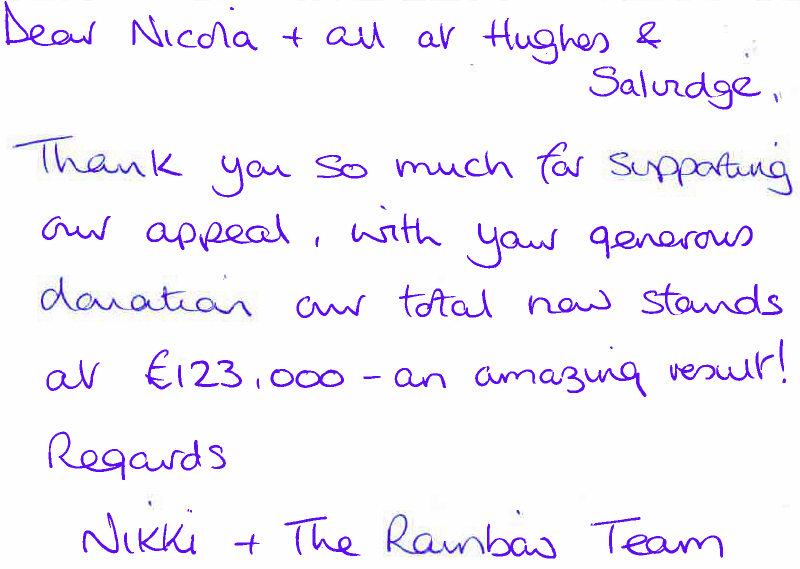 Dear Nicola + all at Hughes &
Salvidge,
Thank you so much for supporting
our appeal, with your generous
donation our total now stands
at £123,000 - an amazing result!
Regards
Nikki + The Rainbow Team